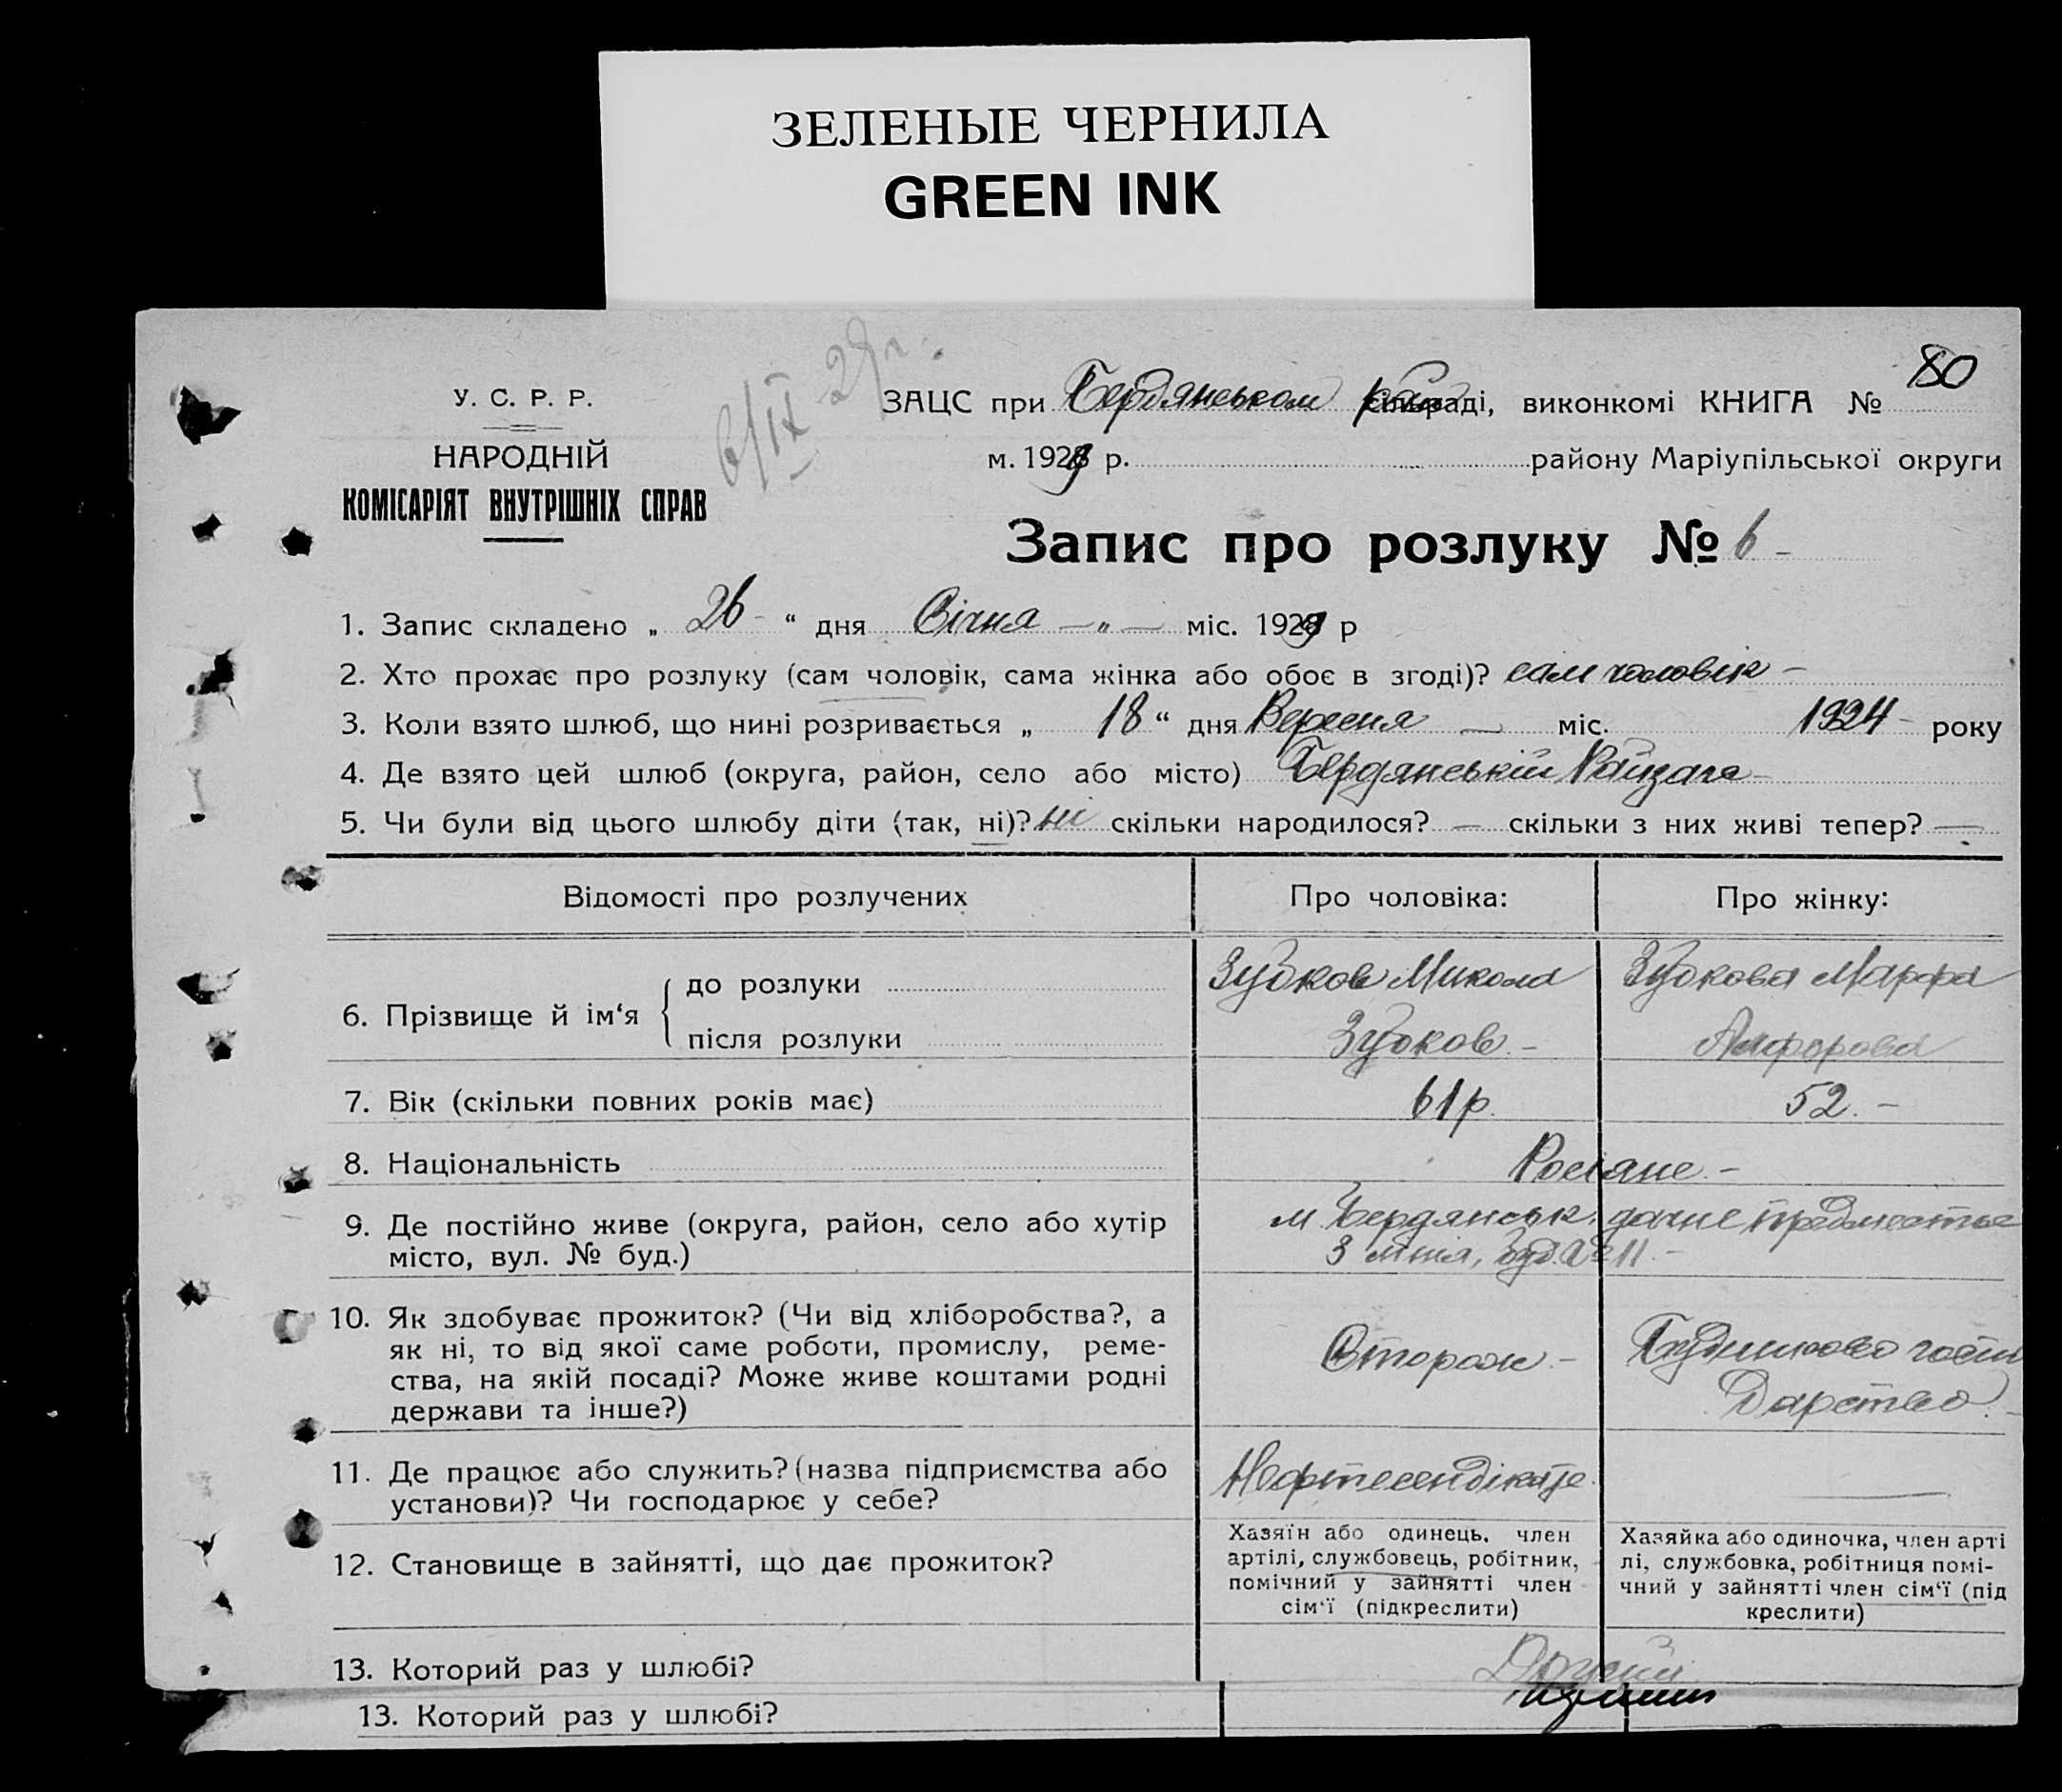 ЗЕЛЕНЫЕ ЧЕРНИЛА
GREEN INK
80
6/IX 29 г.
У. С. Р. Р.
НАРОДНІЙ
КОМІСАРІЯТ ВНУТРІШНІХ СПРАВ
ЗАЦС при Бердянськом сільраді, виконкомі КНИГА №
м. 1929 р. району Маріупільської округи
Запис про розлуку № 6 -
1. Запис складено „ 26 - “ дня Січня — „ — міс. 1929 р
2. Хто прохає про розлуку (сам чоловік, сама жінка або обоє в згоді)? сам чоловік -
3. Коли взято шлюб, що нині розривається „ 18 “ дня Вересня — міс. 1924 - року
4. Де взято цей шлюб (округа, район, село або місто) Бердянській Райзагс -
5. Чи були від цього шлюбу діти (так, ні)? ні скільки народилося? — скільки з них живі тепер? —
Відомості про розлучених Про чоловіка: Про жінку:
6. Прізвище й ім‘я
до розлуки Зубков Микола Зубкова Марфа
після розлуки Зубков - Алфорова
7. Вік (скільки повних років має) 61 р. 52. -
8. Національність Росіяне -
9. Де постійно живе (округа, район, село або хутір м. Бердянськ. дачне предместье
місто, вул. № буд.) 3 лінія, буд. № 11 -
10. Як здобуває прожиток? (Чи від хліборобства?, а
як ні, то від якої саме роботи, промислу, реме-
ства, на якій посаді? Може живе коштами родні
держави та інше?)
Сторож -
Дарство
11. Де працює або служить? (назва підприємства або
установи)? Чи господарює у себе?
Нефтесендікате
12. Становище в зайнятті, що дає прожиток?
Хазяїн або одинець. член
артілі, службовець, робітник,
помічний у зайнятті член
сім‘ї (підкреслити)
Хазяйка або одиночка, член арті
лі, службовка, робітниця помі-
чний у зайнятті член сім‘ї (під
креслити)
13. Которий раз у шлюбі? Другий
13. Которий раз у шлюбі?